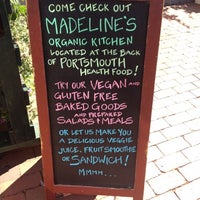 COME CHECK OUT
MADELINE'S
ORGANIC KITCHEN
LOCATED AT THE BACK
OF PORTSMOUTH
HEALTH FOOD!
TRY OUR VEGAN AND
GLUTEN FREE
BAKED GOODS
AND PREPARED
SALADS & MEALS
OR LET US MAKE YOU
A DELICIOUS VEGGIE
JUICE, FRUIT SMOOTHIE
OR SANDWICH!
MMMM...